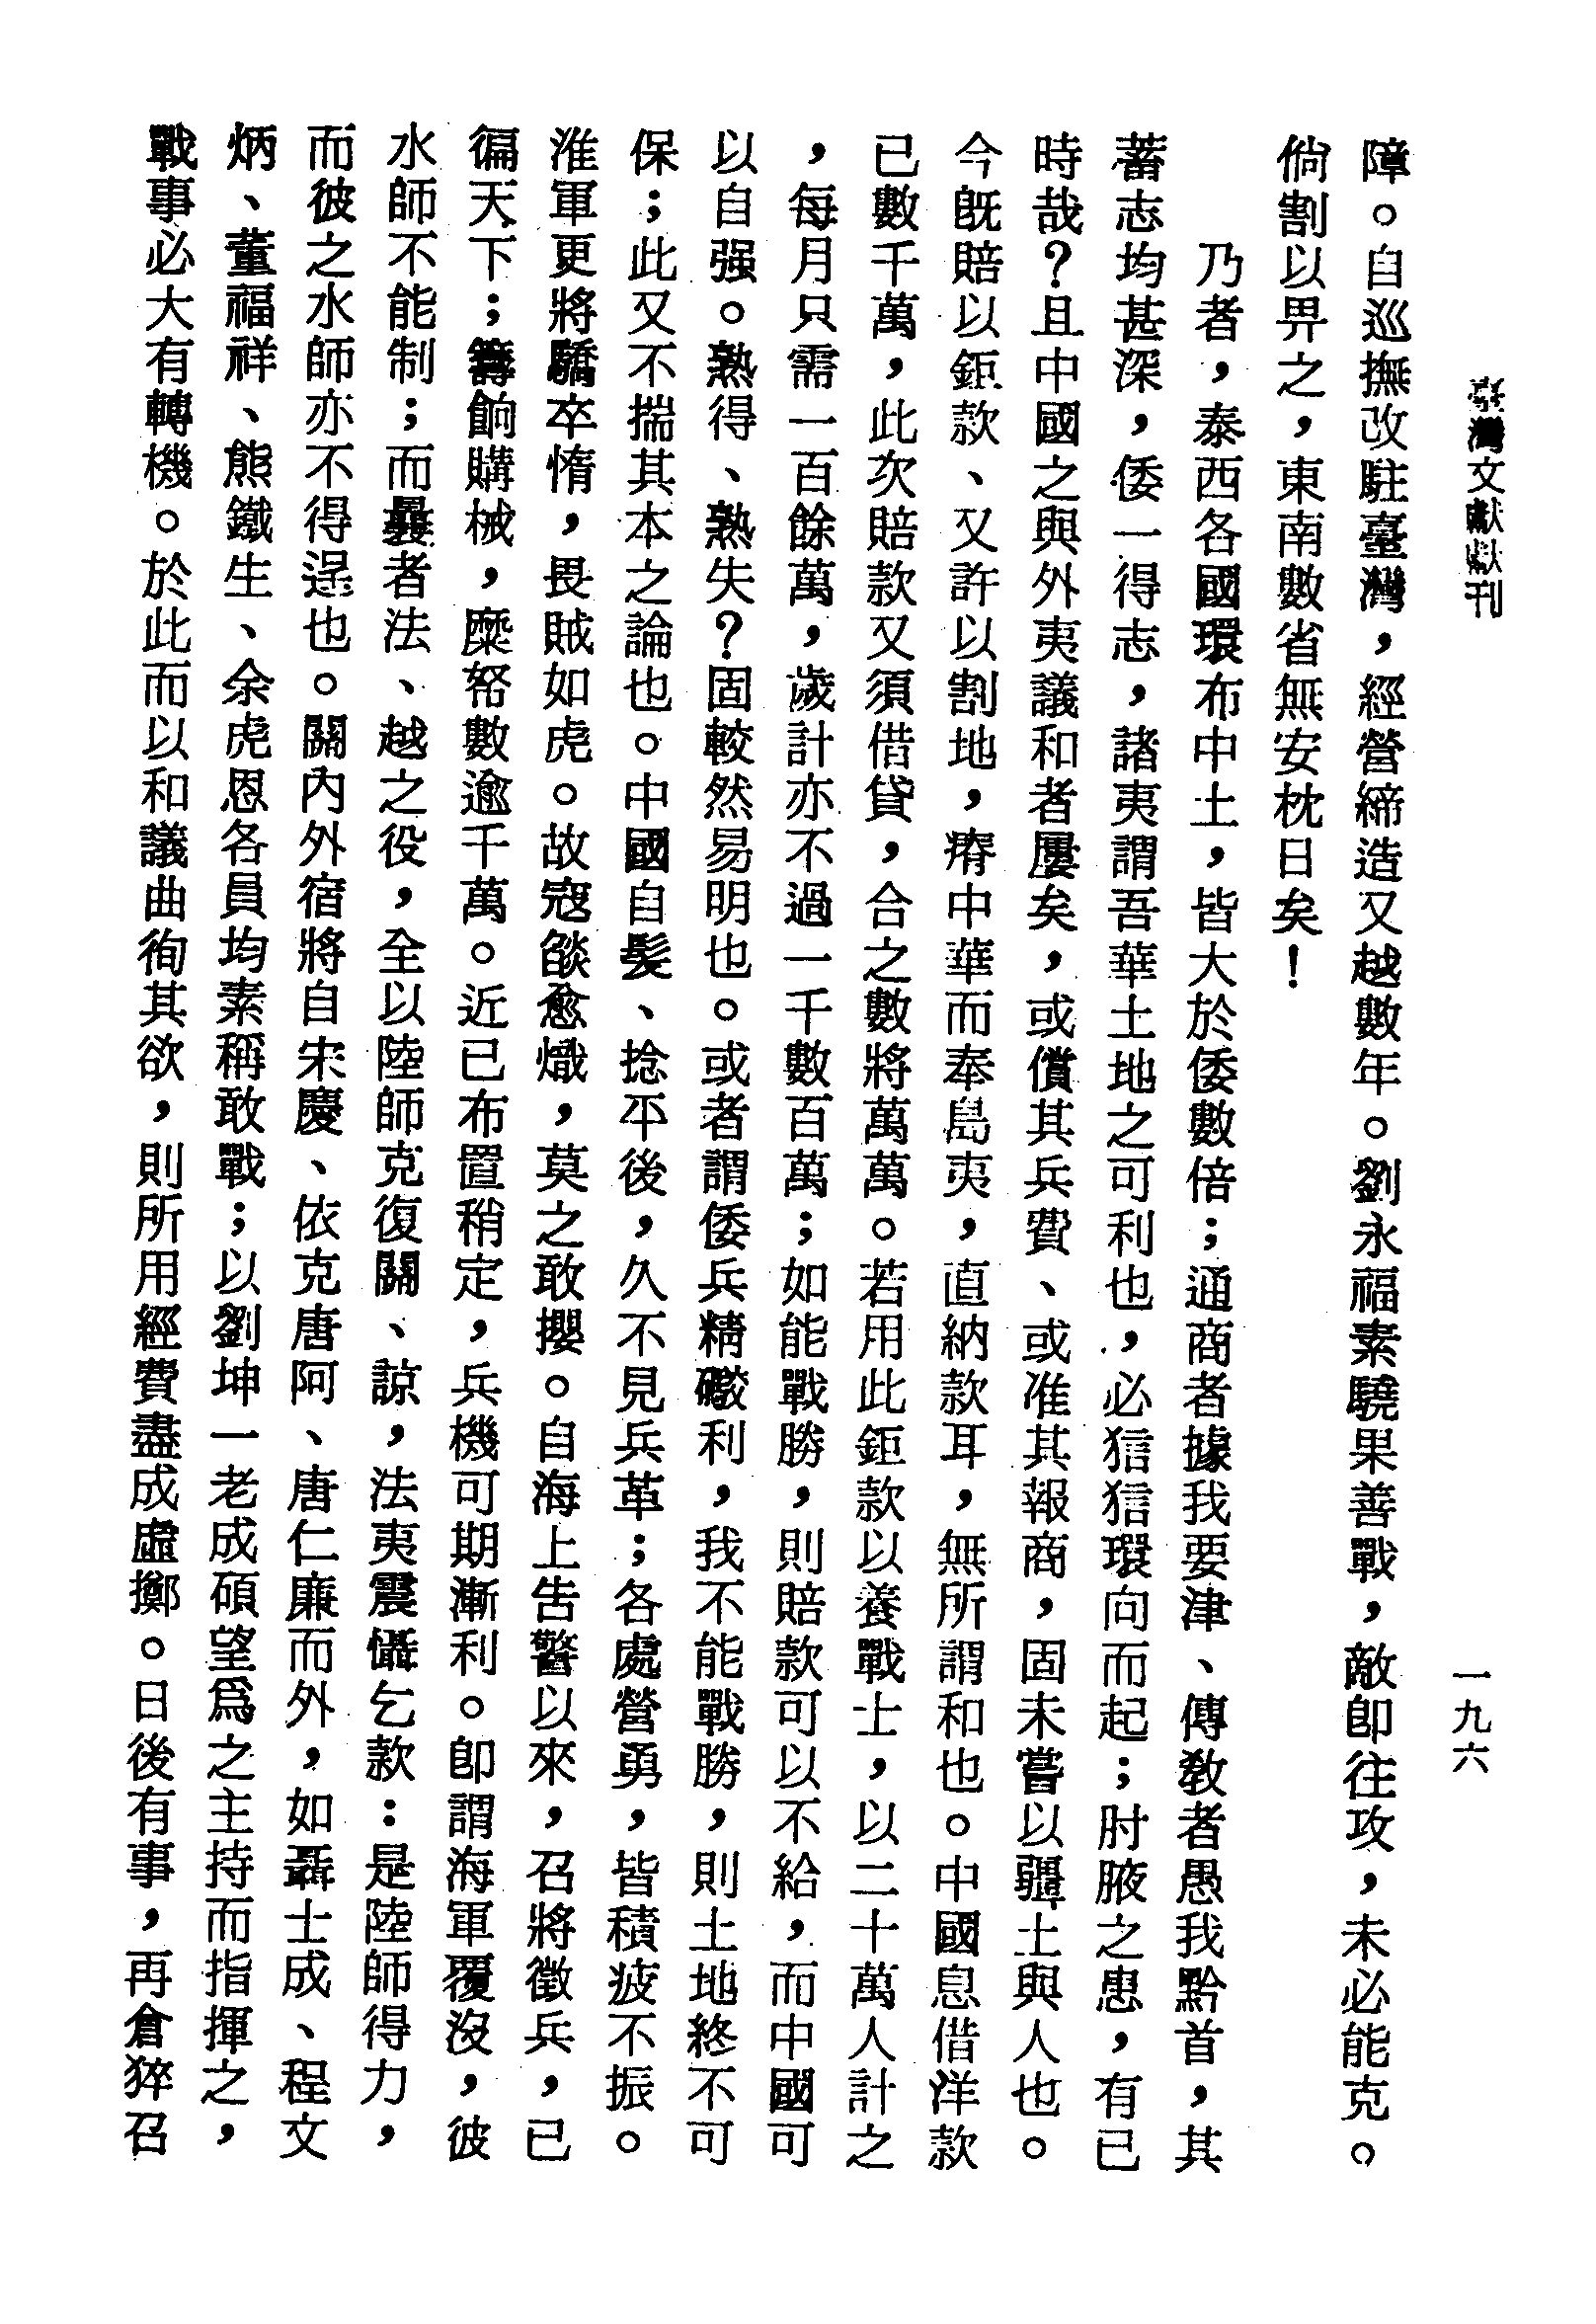 臺灣文獻叢刊
一九六
障。自巡撫改駐臺灣，經營締造又越數年。劉永福素驍果善戰，敵卽往攻，未必能克。
倘割以畀之，東南數省無安枕日矣！
乃者，泰西各國環布中土，皆大於倭數倍；通商者據我要津、傳敎者愚我黔首，其
蓄志均甚深，倭一得志，諸夷謂吾華土地之可利也，必狺狺環向而起；肘腋之患，有已
時哉？且中國之與外夷議和者屢矣，或償其兵費、或准其報商，固未嘗以疆土與人也。
今旣賠以鉅款、又許以割地，瘠中華而奉島夷，直納款耳，無所謂和也。中國息借洋款
已數千萬，此次賠款又須借貸，合之數將萬萬。若用此鉅款以養戰士，以二十萬人計之
，每月只需一百餘萬，歲計亦不過一千數百萬；如能戰勝，則賠款可以不給，而中國可
以自强。熟得、熟失？固較然易明也。或者謂倭兵精礮利，我不能戰勝，則土地終不可
保；此又不揣其本之論也。中國自髮、捻平後，久不見兵革；各處營勇，皆積疲不振。
淮軍更將驕卒惰，畏賊如虎。故寇燄愈熾，莫之敢攖。自海上吿警以來，召將徵兵，已
徧天下；籌餉購械，糜帑數逾千萬。近已布置稍定，兵機可期漸利。卽謂海軍覆沒，彼
水師不能制；而曩者法、越之役，全以陸師克復關、諒，法夷震懾乞款：是陸師得力，
而彼之水師亦不得逞也。關內外宿將自宋慶、依克唐阿、唐仁廉而外，如聶士成、程文
炳、董福祥、熊鐵生、余虎恩各員均素稱敢戰；以劉坤一老成碩望爲之主持而指揮之，
戰事必大有轉機。於此而以和議曲徇其欲，則所用經費盡成虛擲。日後有事，再倉猝召